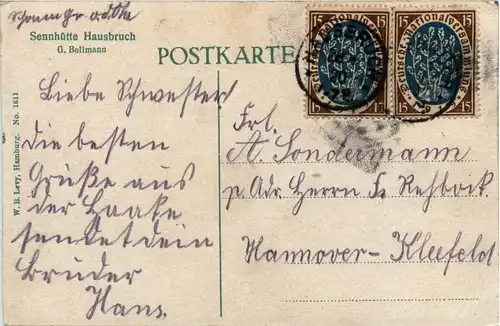 Sennhütte Hausbruch
G. Bollmann
POSTKARTE
Liebe Schwester!
Die besten
Grüße aus
der Haake
sendet dein
Bruder
Hans.
W. B. Levy, Hamburg. No. 1611
15 15 15 15
Deutsche Nationalversammlung
1919
Frl.
A. Sondermann
p. Adr. Herrn Fr. Rehbock
Hannover-Kleefeld